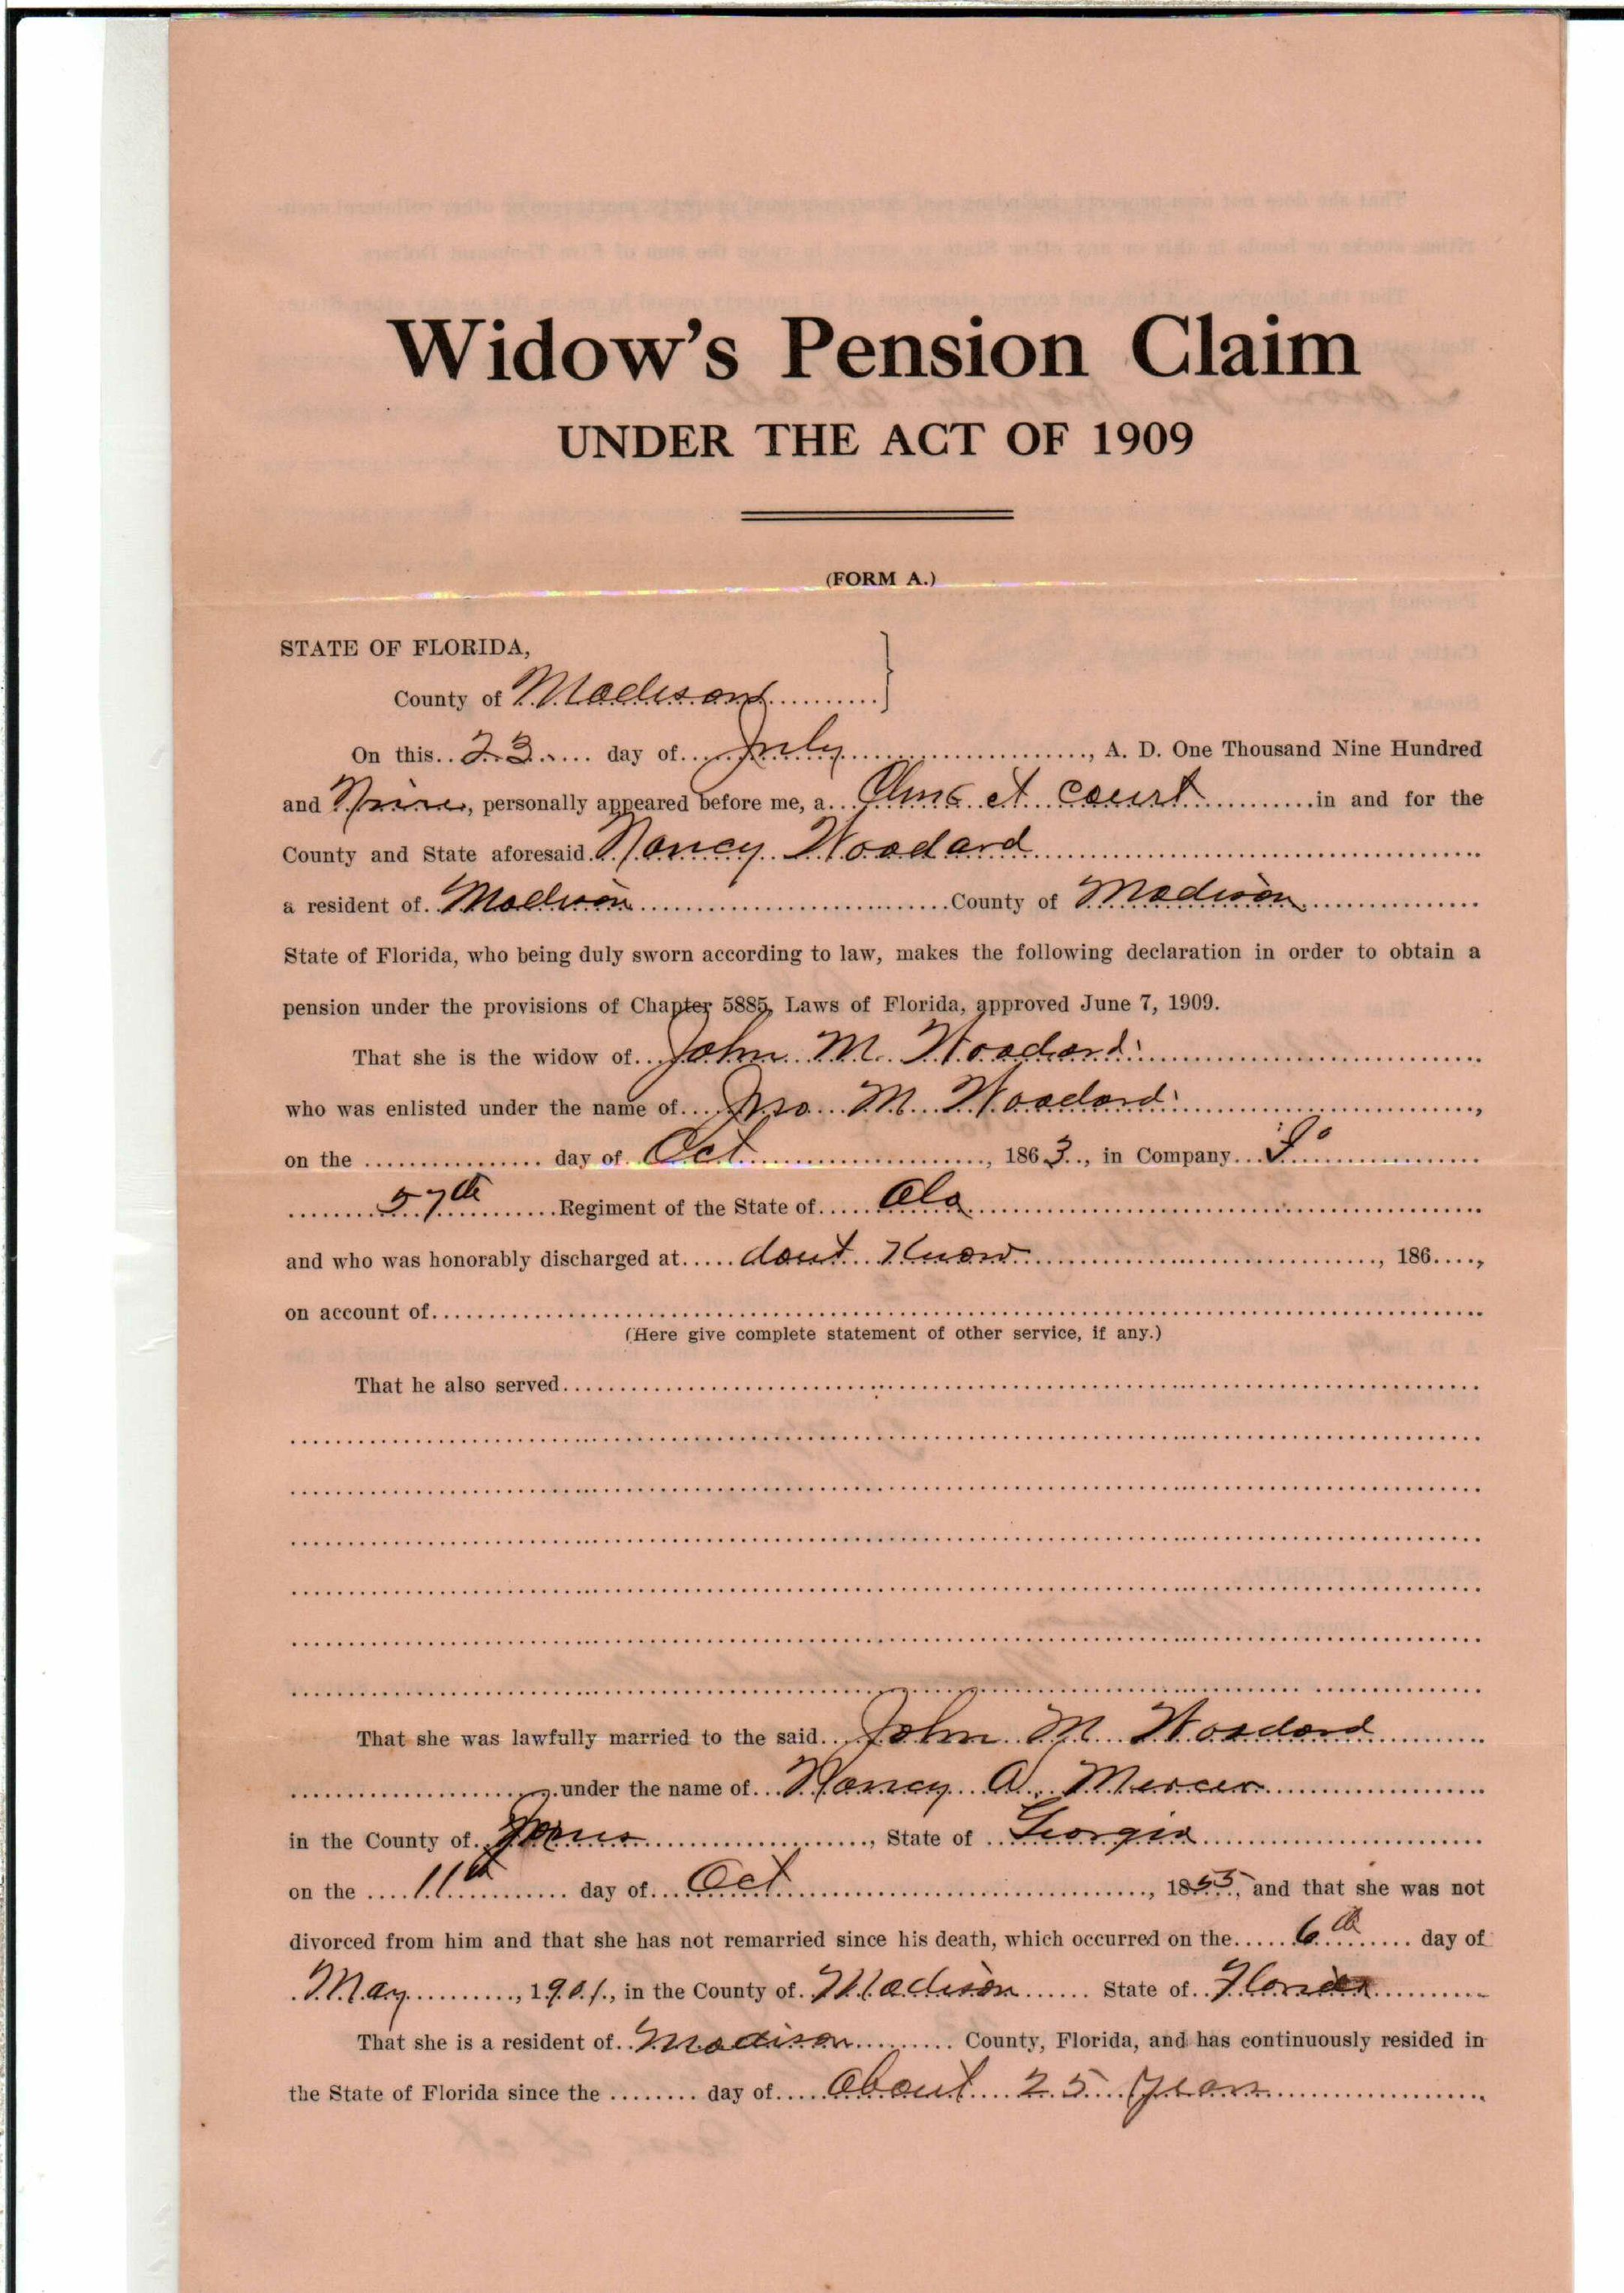 Widow's Pension Claim
UNDER THE ACT OF 1909
(FORM A.)
STATE OF FLORIDA,
County of Madison
On this 23 day of July, A. D. One Thousand Nine Hundred
and Nine, personally appeared before me, a Court in and for the
County and State aforesaid Nancy Woodard
a resident of Madison County of Madison
State of Florida, who being duly sworn according to law, makes the following declaration in order to obtain a
pension under the provisions of Chapter 5885, Laws of Florida, approved June 7, 1909.
That she is the widow of John M. Woodard
who was enlisted under the name of Jno M. Woodard,
on the day of Oct, 1863, in Company
57th Regiment of the State of Ala
and who was honorably discharged at dont Know, 186,
on account of
(Here give complete statement of other service, if any.)
That he also served
That she was lawfully married to the said John M Woodard
under the name of Nancy A. Mercer
in the County of, State of Georgia
on the 11th day of Oct, 1853, and that she was not
divorced from him and that she has not remarried since his death, which occurred on the 6th day of
May, 1901, in the County of Madison State of Florida
That she is a resident of Madison County, Florida, and has continuously resided in
the State of Florida since the day of about 25 years